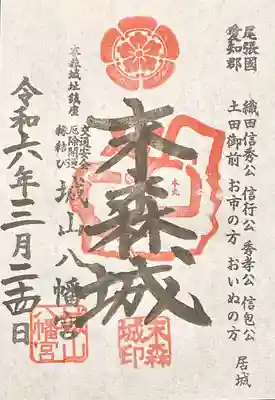 尾張國
愛知郡
織田信秀公 信行公 秀孝公 信包公
土田御前 お市の方 おいぬの方
居城
末森城
本丸
末森城址鎮座
交通安全
厄除開運
縁結び
城山八幡宮
令和六年三月二十四日
末森
城印
城山
八幡宮